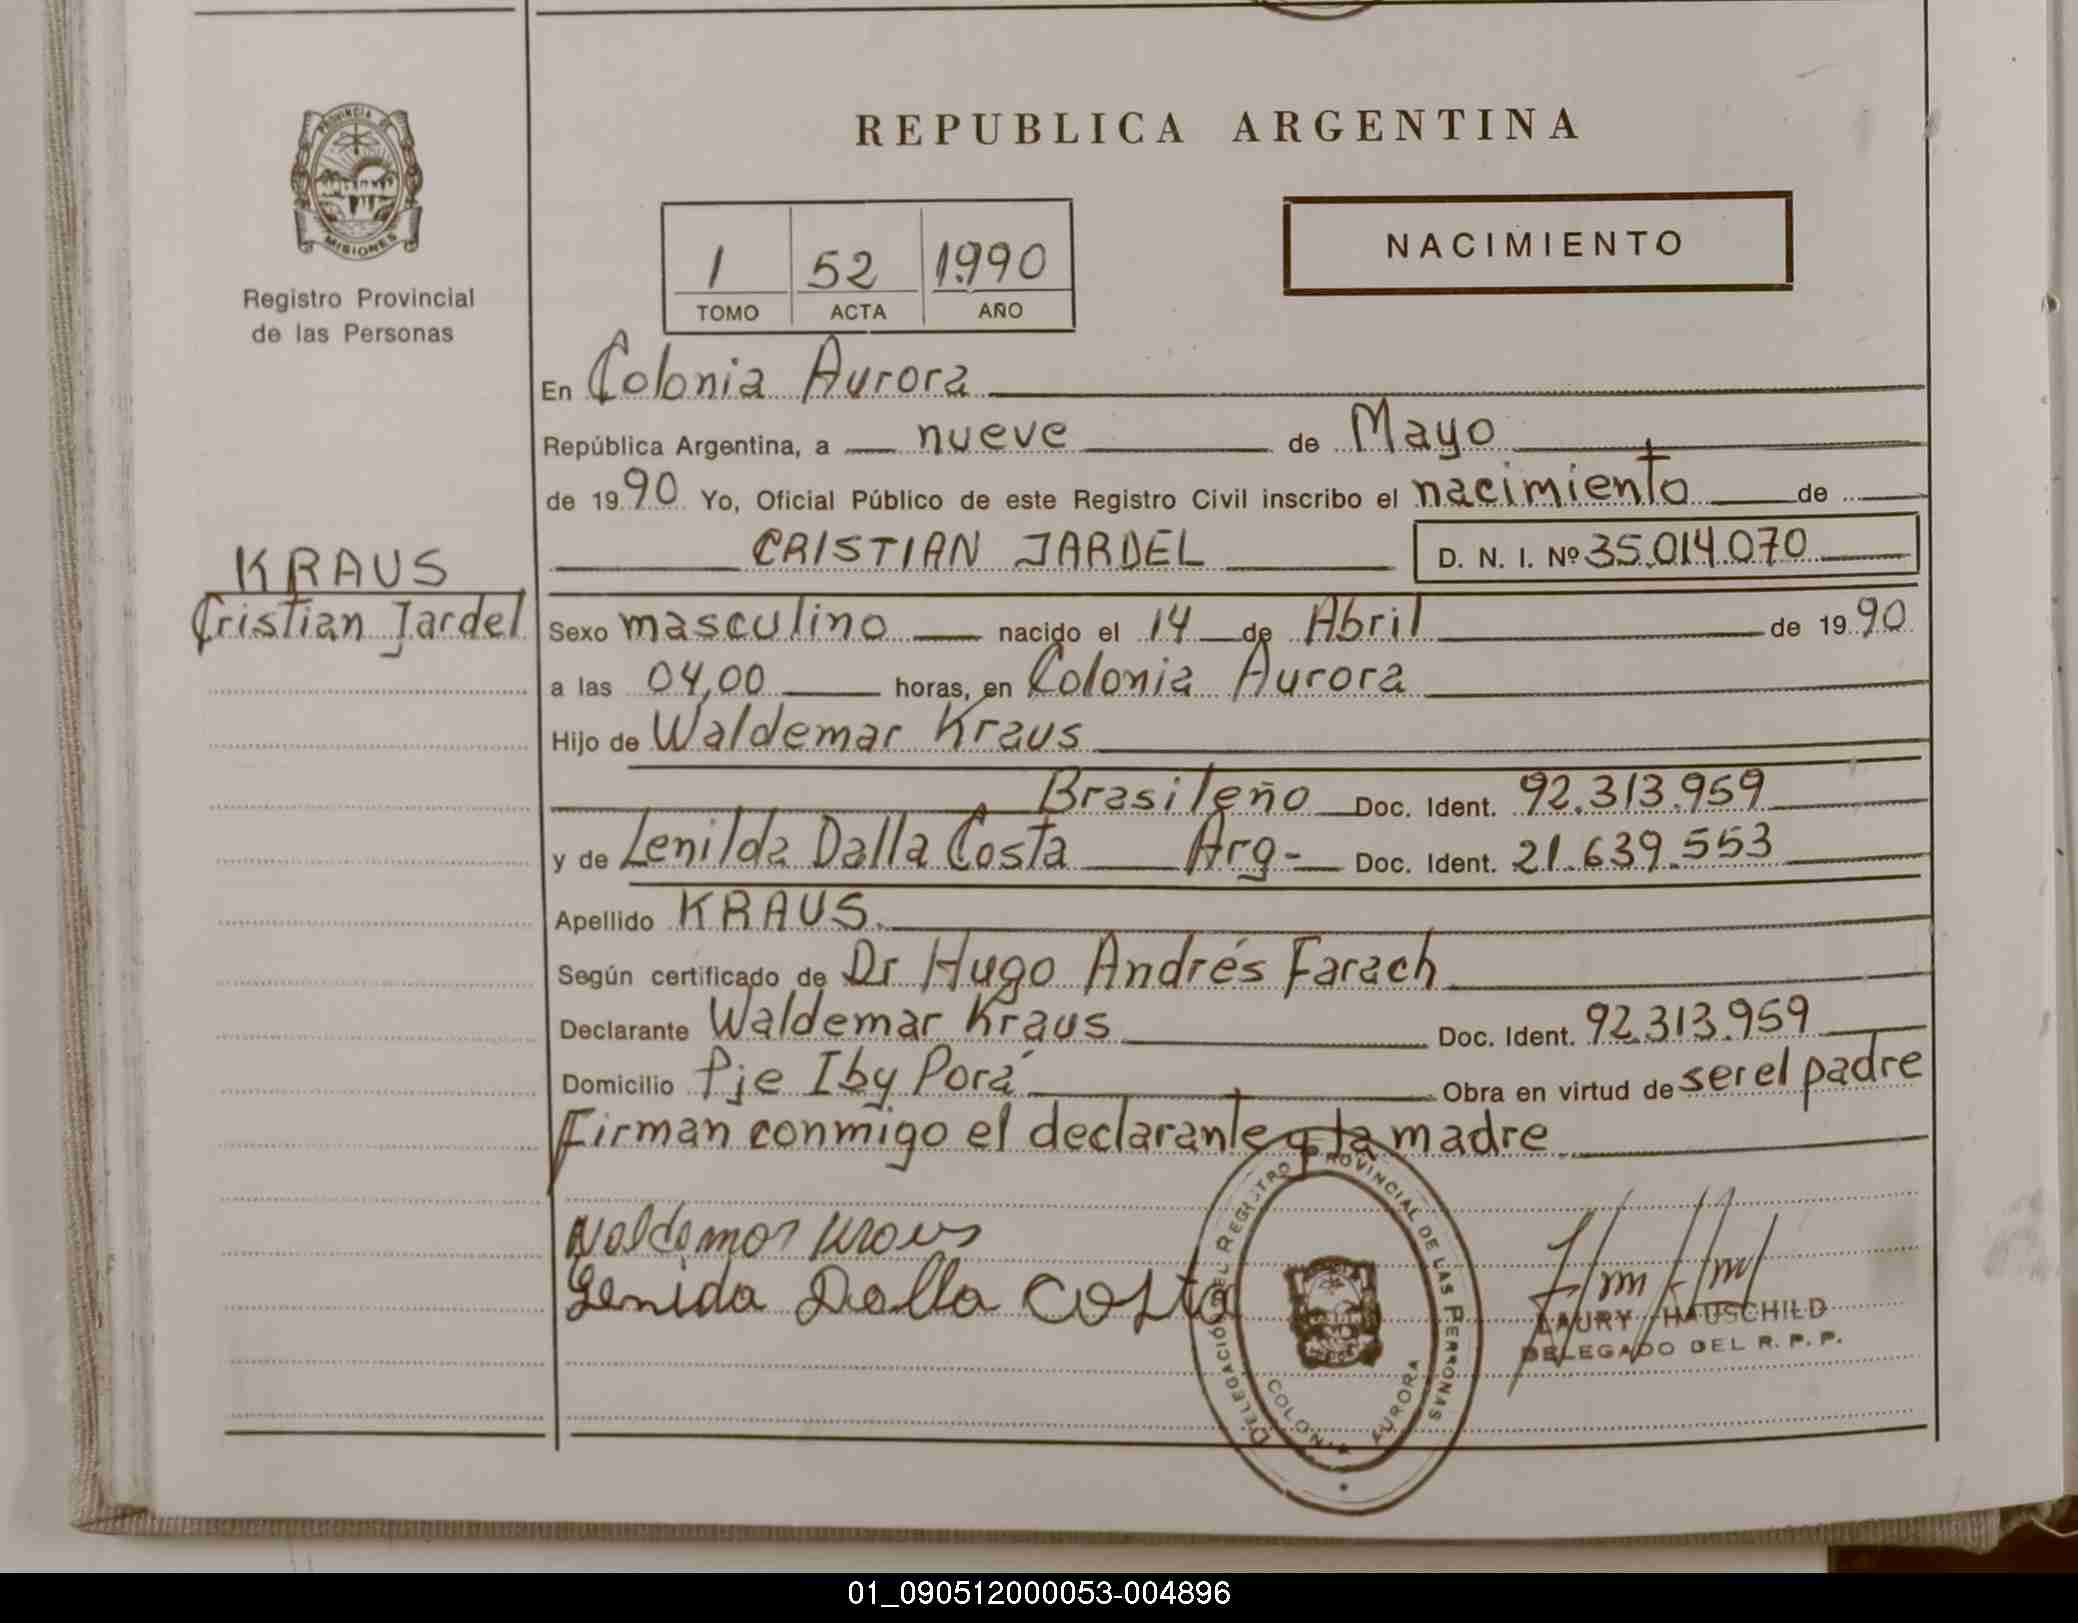 REPUBLICA ARGENTINA
PROVINCIA DE
MISIONES
Registro Provincial
de las Personas
1 52 1990
TOMO ACTA AÑO
NACIMIENTO
En Colonia Aurora
República Argentina, a nueve de Mayo
de 1990 Yo, Oficial Público de este Registro Civil inscribo el nacimiento de
CRISTIAN JARDEL D. N. I. Nº 35.014.070
KRAUS
Cristian Jardel
Sexo masculino nacido el 14 de Abril de 1990
a las 04,00 horas, en Colonia Aurora
Hijo de Waldemar Kraus
Brasileño Doc. Ident. 92.313.959
y de Lenilda Dalla Costa Arg- Doc. Ident. 21.639.553
Apellido KRAUS.
Según certificado de Dr Hugo Andrés Farach
Declarante Waldemar Kraus Doc. Ident. 92.313.959
Domicilio Pje Iby Porá Obra en virtud de ser el padre
Firman conmigo el declarante y la madre
Waldemar Kraus
Lenida Dalla Costa
DELEGACION DEL REGISTRO PROVINCIAL DE LAS PERSONAS
COLONIA AURORA
LAURY HAUSCHILD
DELEGADO DEL R. P. P.
01_090512000053-004896